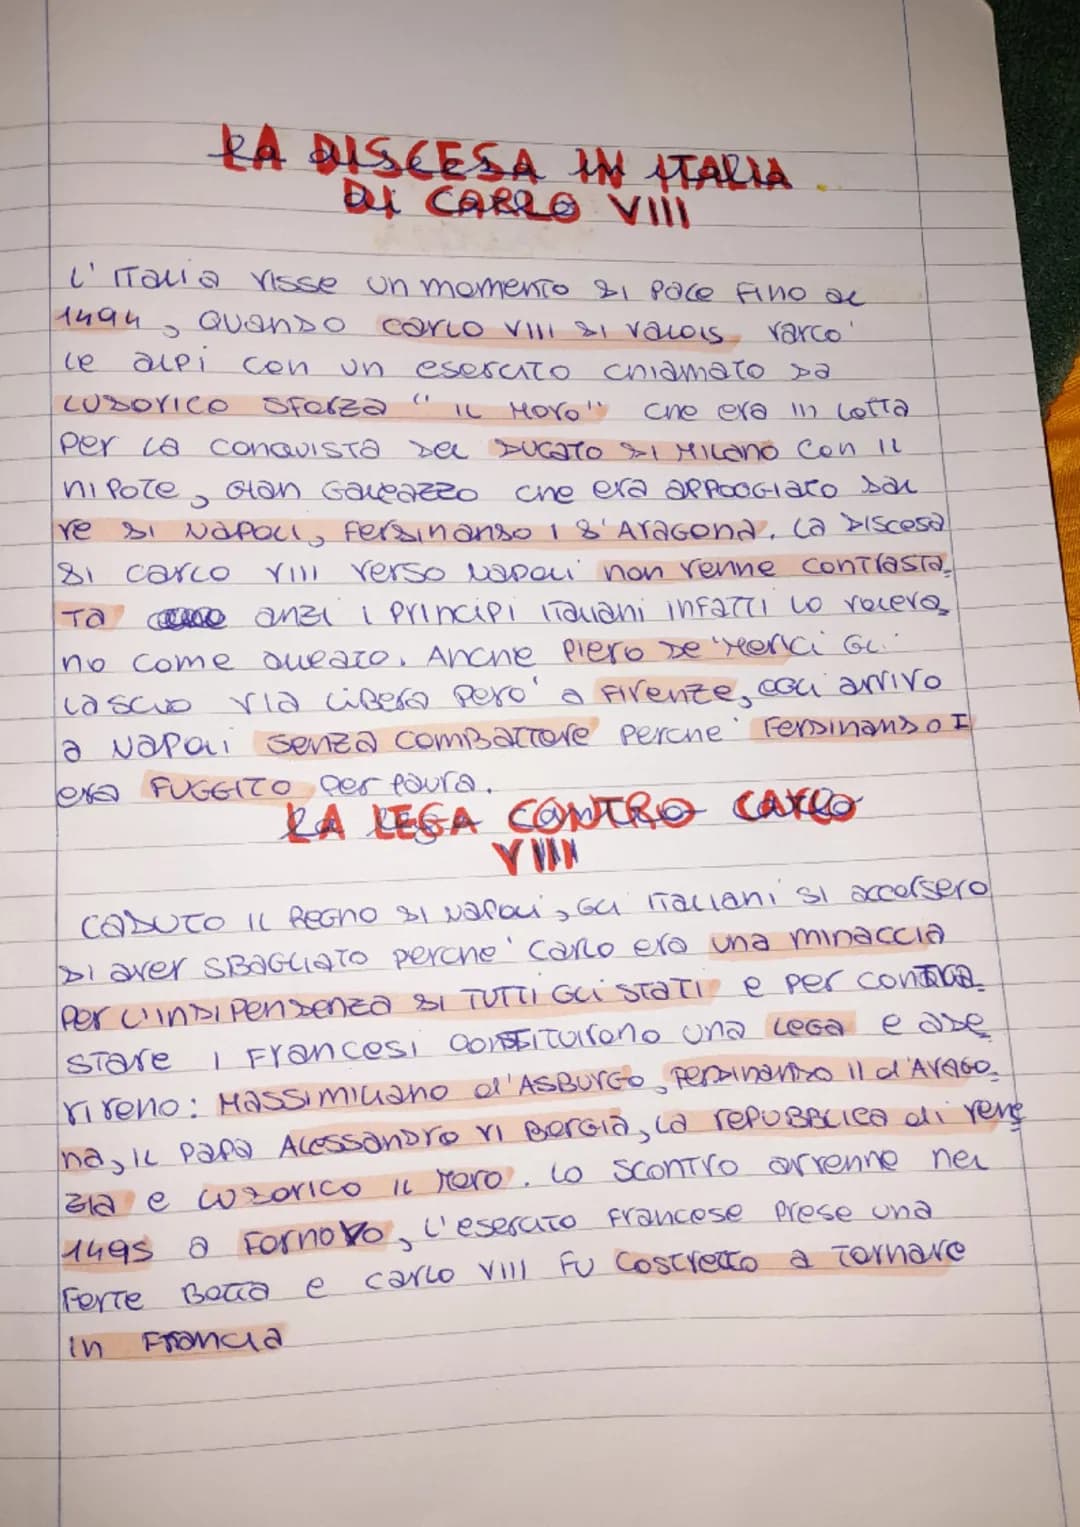 LA DISCESA IN ITALIA
DI CARLO VIII
L'ITALIA VISSE UN MOMENTO DI PACE FINO AL
1494, QUANDO CARLO VIII DI VALOIS VARCO'
LE ALPI CON UN ESERCITO CHIAMATO DA
LUDOVICO SFORZA "IL MORO" CHE ERA IN LOTTA
PER LA CONQUISTA DEL DUCATO DI MILANO CON IL
NIPOTE, GIAN GALEAZZO CHE ERA APPOGGIATO DAL
RE DI NAPOLI, FERDINANDO I D'ARAGONA. LA DISCESA
DI CARLO VIII VERSO NAPOLI NON VENNE CONTRASTA
TA ANZI I PRINCIPI ITALIANI INFATTI LO VOLEVA
NO COME ALLEATO. ANCHE PIERO DE' MEDICI GLI
LASCIO VIA LIBERA PERO' A FIRENZE, COSI ARRIVO
A NAPOLI SENZA COMBATTERE PERCHE' FERDINANDO I
ERA FUGGITO PER PAURA.
LA LEGA CONTRO CARLO
VIII
CADUTO IL REGNO DI NAPOLI, GLI ITALIANI SI ACCORSERO
DI AVER SBAGLIATO PERCHE' CARLO ERA UNA MINACCIA
PER L'INDIPENDENZA DI TUTTI GLI STATI E PER CONTRA
STARE I FRANCESI COSTITUIRONO UNA LEGA E ADE
RIRENO: MASSIMILIANO d'ASBURGO, FERDINANDO II d'ARAGO
NA, IL PAPA ALESSANDRO VI BORGIA, LA REPUBBLICA di VENE
ZIA E LUDOVICO IL MORO. LO SCONTRO AVVENNE NEL
1495 A FORNOVO, L'ESERCITO FRANCESE PRESE UNA
FORTE BOTTA E CARLO VIII FU COSTRETTO A TORNARE
IN FRANCIA